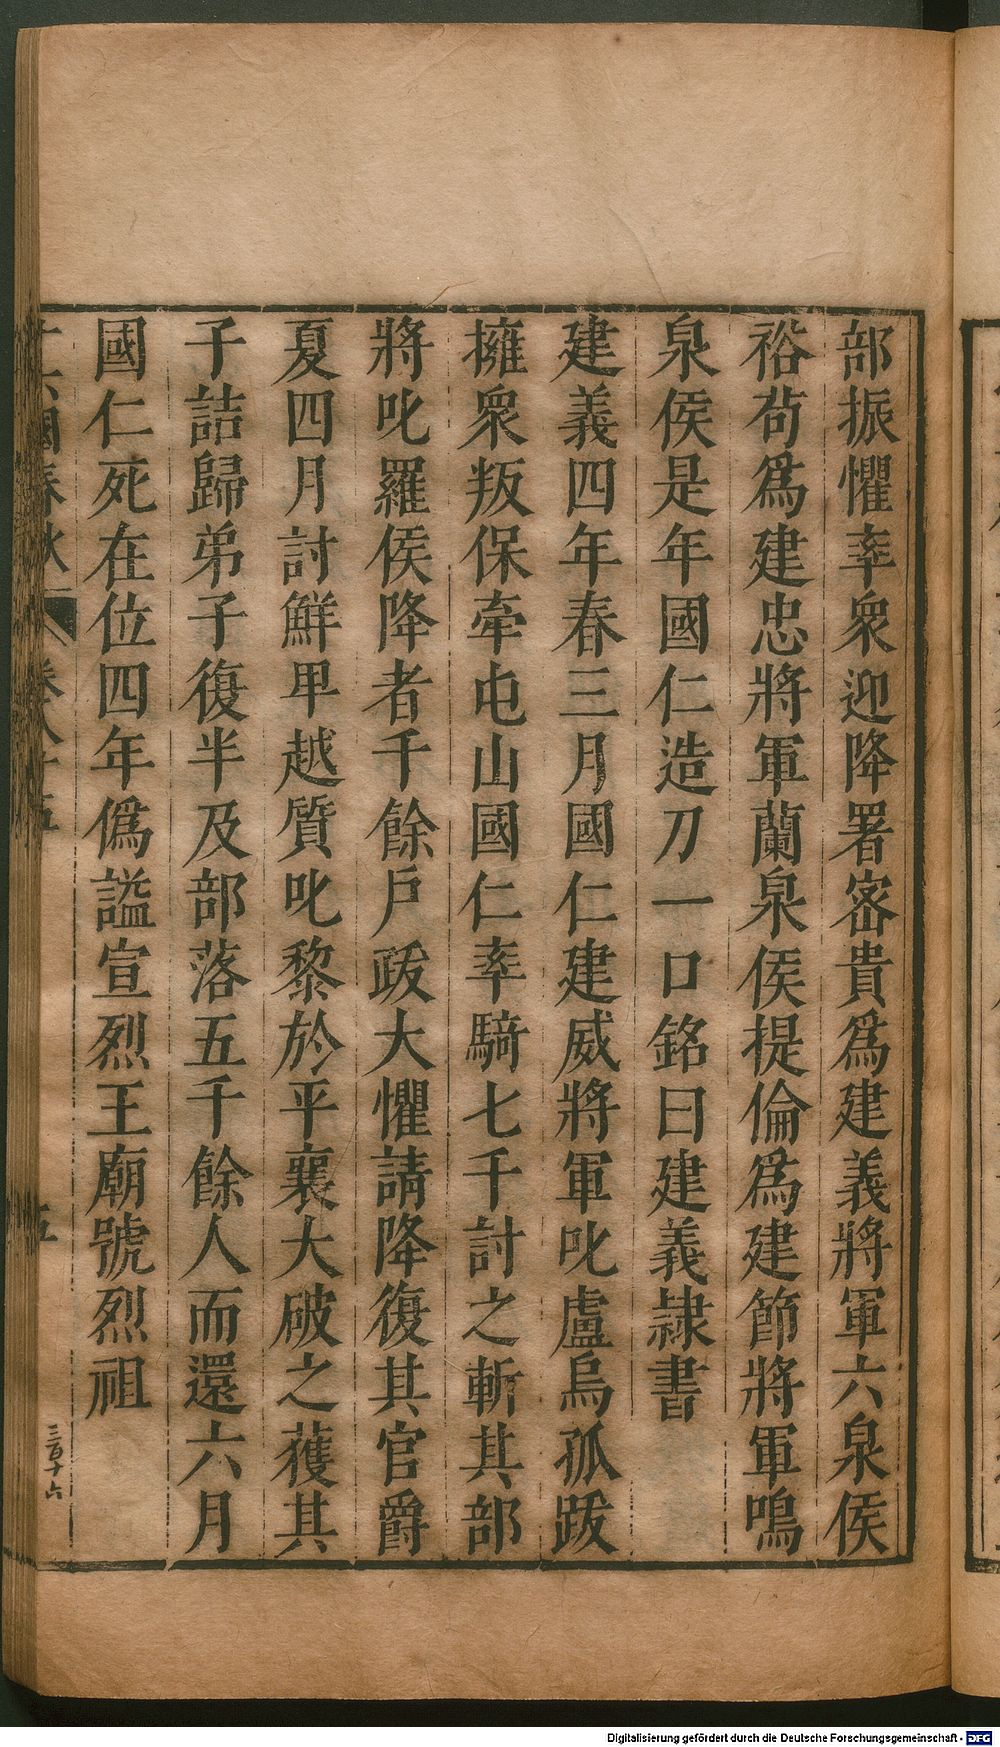 部振懼率衆迎降署密貴爲建義將軍六泉侯
裕茍爲建忠將軍蘭泉侯提倫爲建節將軍鳴
泉侯是年國仁造刀一口銘曰建義隷書
建義四年春三月國仁建威將軍叱盧烏孤跋
擁衆叛保牽屯山國仁率騎七千討之斬其部
將叱羅侯降者千餘戶跋大懼請降復其官爵
夏四月討鮮卑越質叱黎於平襄大破之獲其
子詰歸弟子復半及部落五千餘人而還六月
國仁死在位四年僞謚宣烈王廟號烈祖
十六國春秋 卷八十五 五
三百十六
Digitalisierung gefördert durch die Deutsche Forschungsgemeinschaft - DFG